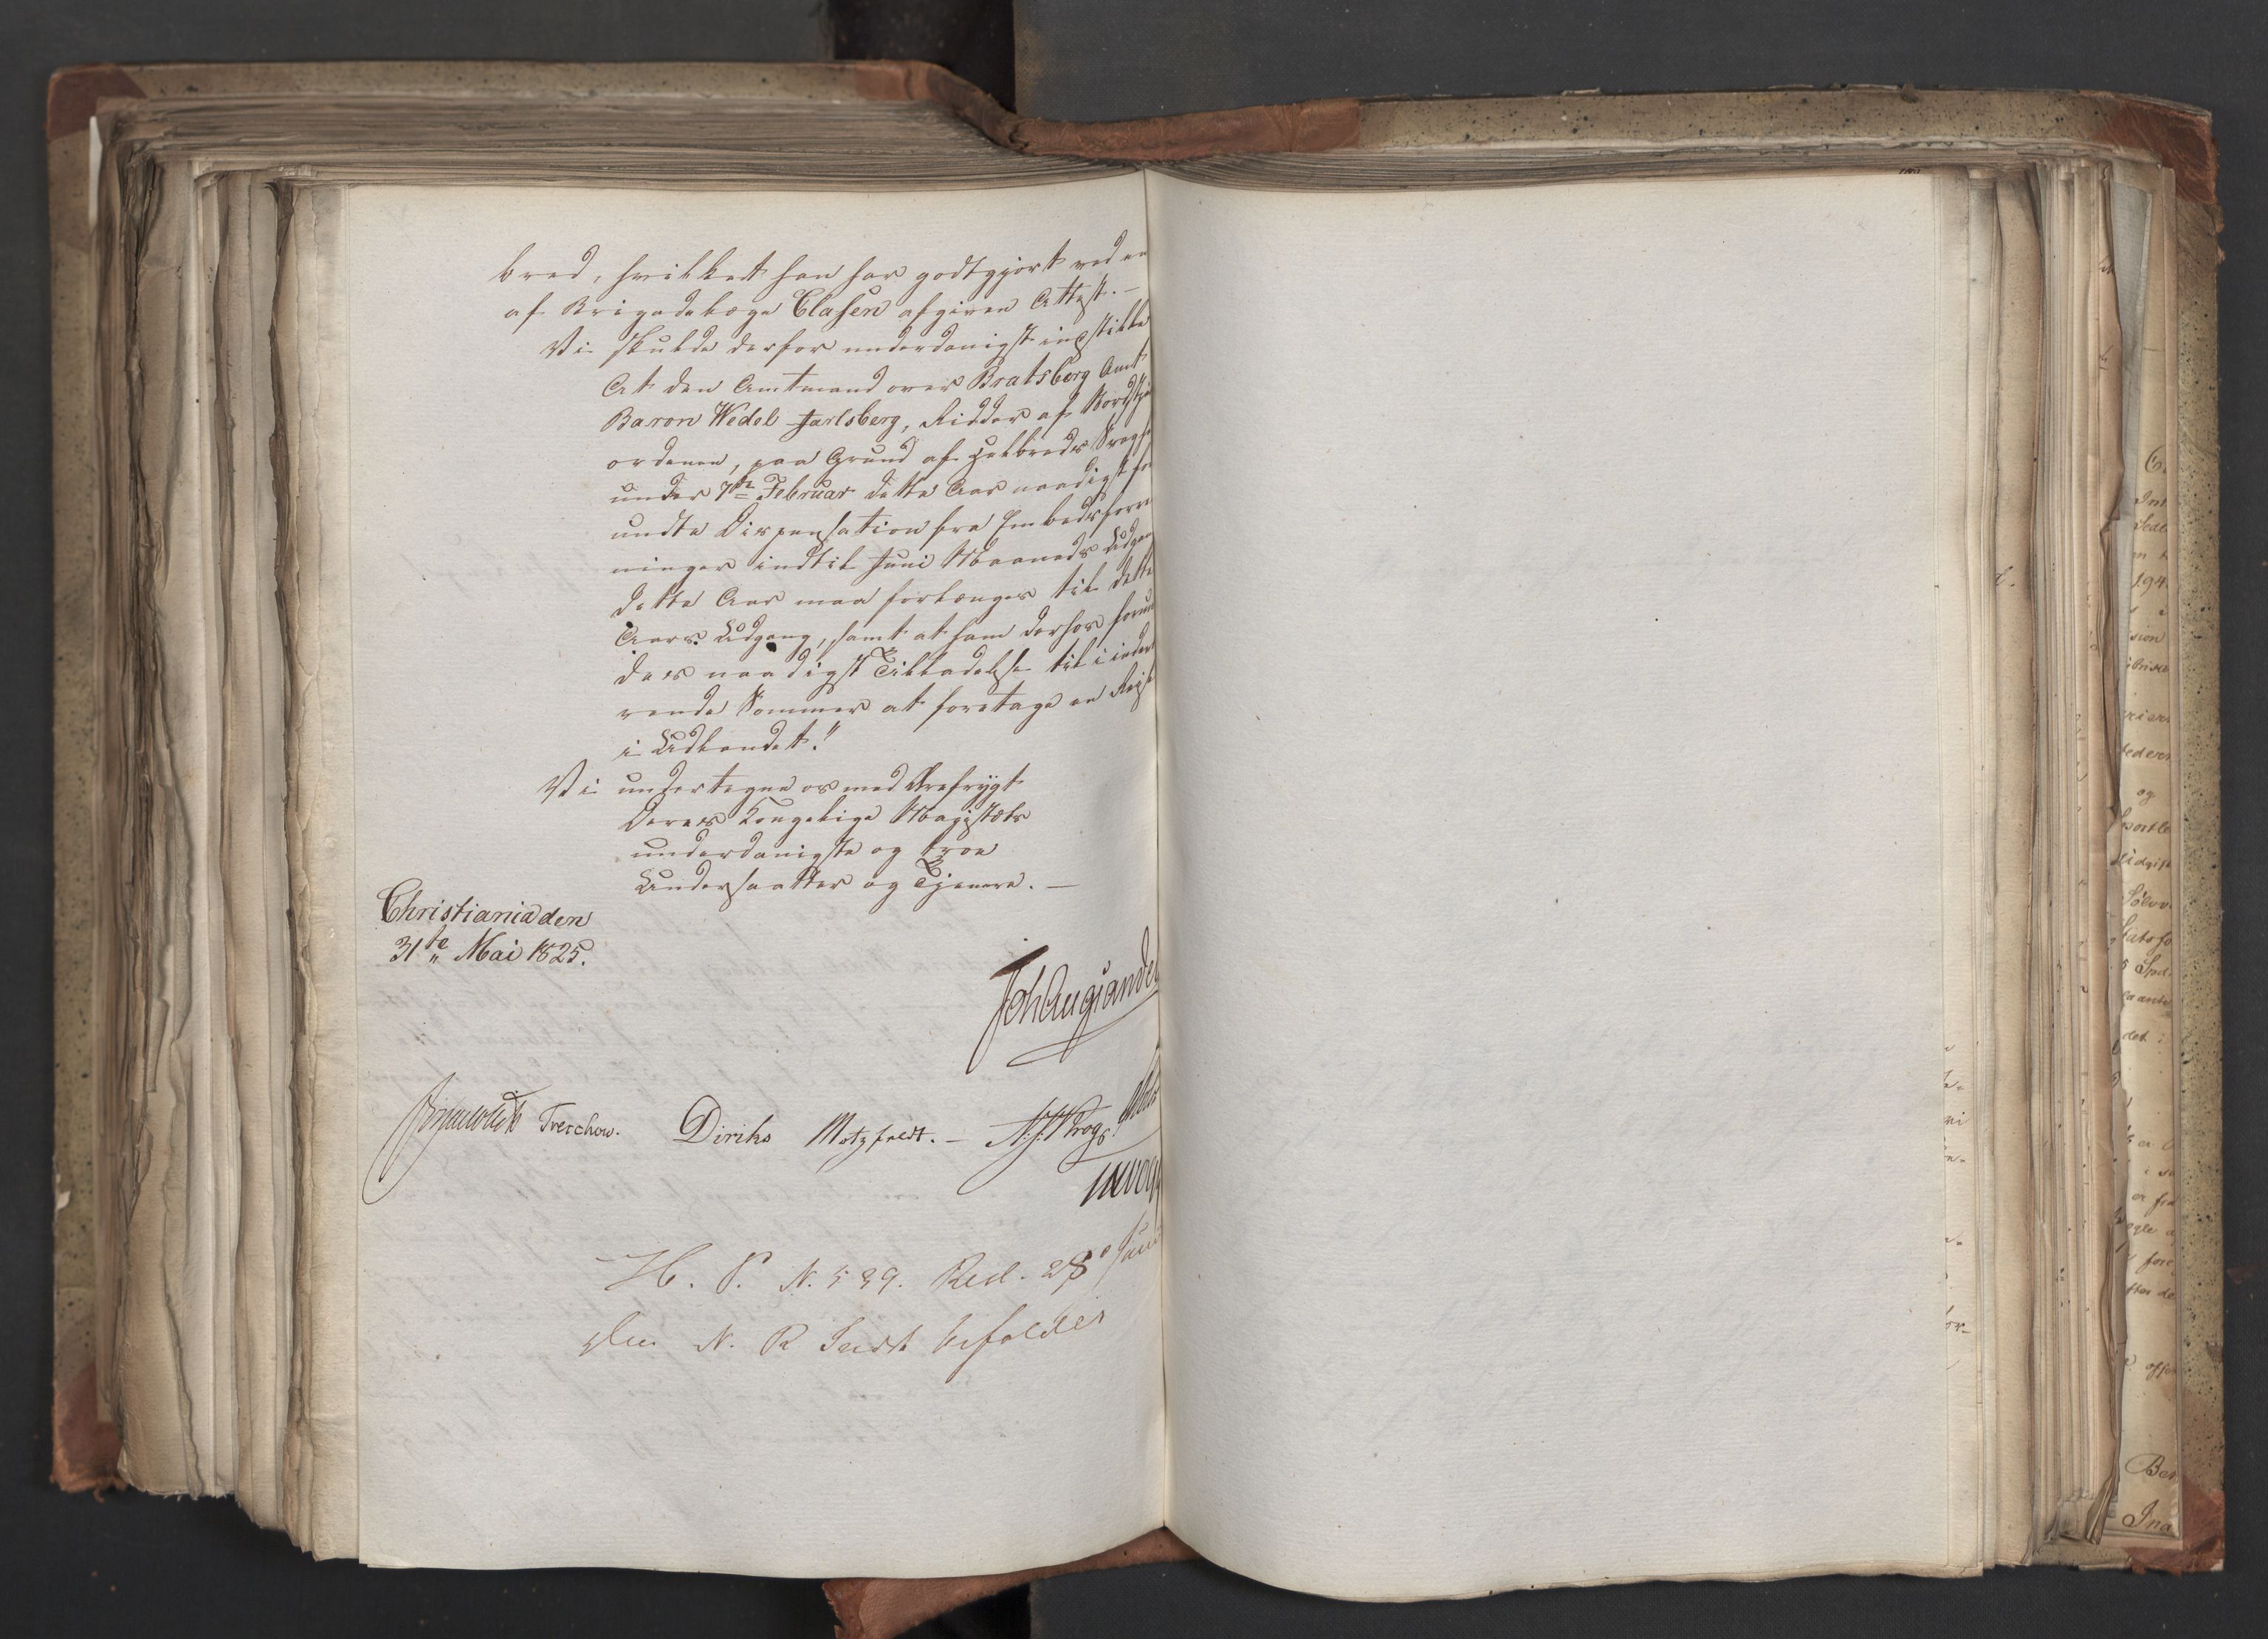 bred, hvilket han har godtgjort ved en
af Brigadelæge Clasen afgiven Attest. –
Vi skulde derfor underdanigst indstille
At den Amtmand over Bratsberg Amt
Baron Wedel Jarlsberg, Ridder af Nordstje
ordenen, paa Grund af Helbreds Svaghed
under 7de Februar dette Aar naadigst for
undte Dispensation fra Embedsforret
ninger indtil Juni Maaneds Udgang
dette Aar maa forlænges til dette
Aars Udgang, samt at ham derhos forun
des naadigst Tilladelse til i indevæ
rende Sommer at foretage en Rejse
i Udlandet."
Vi undertegne os med Ærefrygt
Deres Kongelige Majestæts
underdanigste og troe
Undersaatter og Tjenere. –
Christiania den
31te Mai 1825.
Joh Aug Sandel
Treschow. Diriks Motzfeldt. – Krog
H. P. N. 539. Resl. 28 Juni
Den N. R. Indst bifaldes